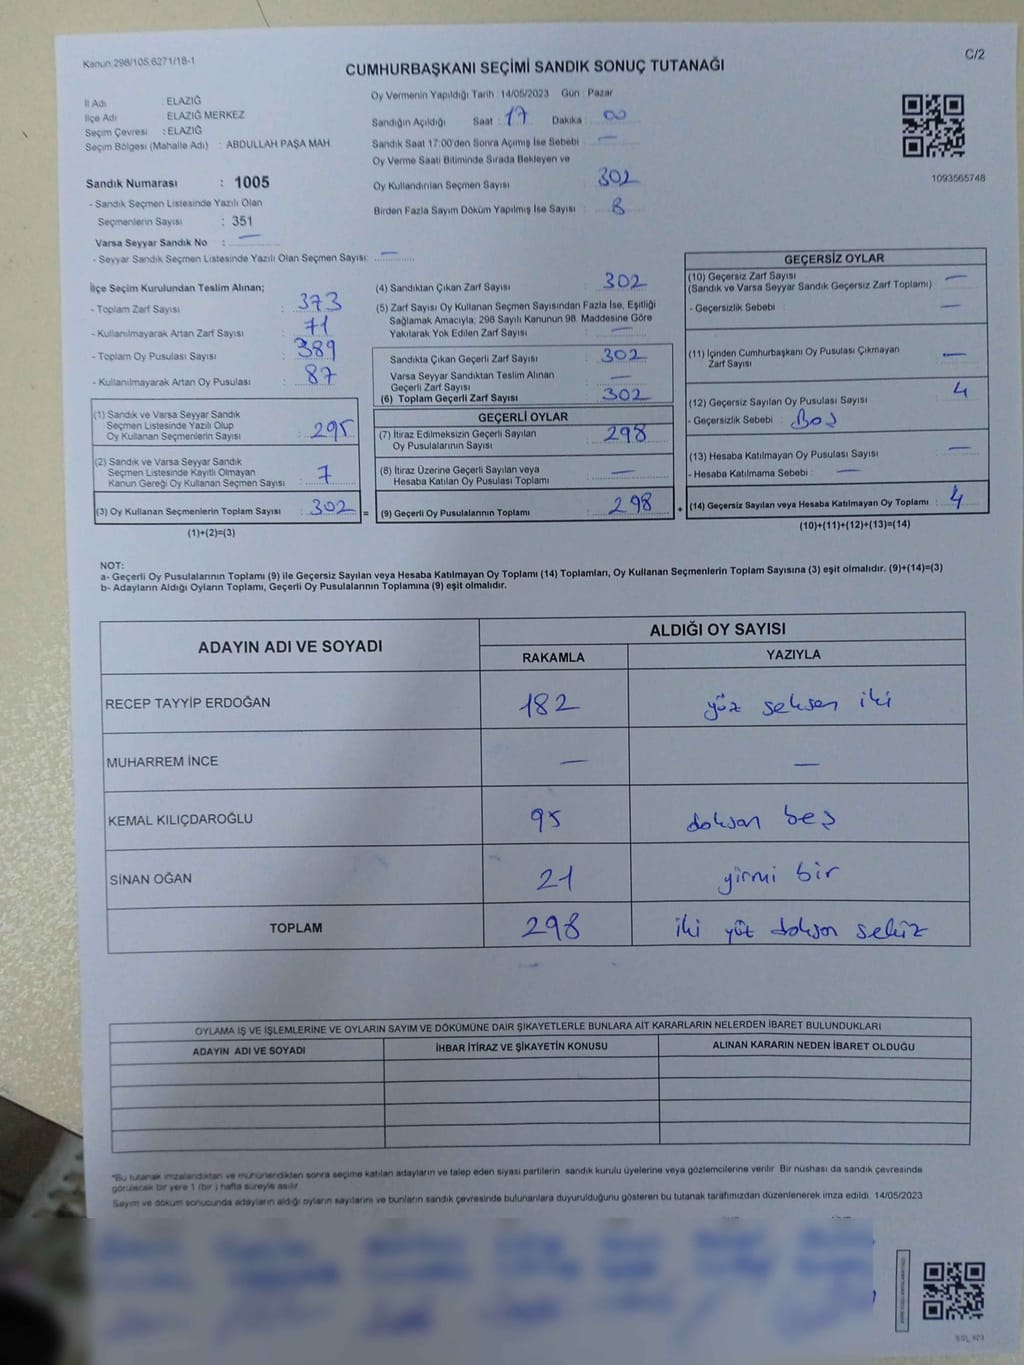 Kanun:298/105:6271/18-1
C/2
CUMHURBAŞKANI SEÇİMİ SANDIK SONUÇ TUTANAĞI
İl Adı : ELAZIĞ
İlçe Adı : ELAZIĞ MERKEZ
Seçim Çevresi : ELAZIĞ
Seçim Bölgesi (Mahalle Adı) : ABDULLAH PAŞA MAH.
Sandık Numarası : 1005
- Sandık Seçmen Listesinde Yazılı Olan
Seçmenlerin Sayısı : 351
Varsa Seyyar Sandık No : —
- Seyyar Sandık Seçmen Listesinde Yazılı Olan Seçmen Sayısı: —
Oy Vermenin Yapıldığı Tarih : 14/05/2023 Gün : Pazar
Sandığın Açıldığı Saat : 17 Dakika : 00
Sandık Saat 17:00'den Sonra Açımış İse Sebebi : —
Oy Verme Saati Bitiminde Sırada Bekleyen ve
Oy Kullandırılan Seçmen Sayısı : 302
Birden Fazla Sayım Döküm Yapılmış İse Sayısı : 8
1093565748
İlçe Seçim Kurulundan Teslim Alınan;
- Toplam Zarf Sayısı : 373
- Kullanılmayarak Artan Zarf Sayısı : 71
- Toplam Oy Pusulası Sayısı : 389
- Kullanılmayarak Artan Oy Pusulası : 87
(1) Sandık ve Varsa Seyyar Sandık
Seçmen Listesinde Yazılı Olup
Oy Kullanan Seçmenlerin Sayısı : 295
(2) Sandık ve Varsa Seyyar Sandık
Seçmen Listesinde Kayıtlı Olmayan
Kanun Gereği Oy Kullanan Seçmen Sayısı : 7
(3) Oy Kullanan Seçmenlerin Toplam Sayısı : 302 =
(1)+(2)=(3)
(4) Sandıktan Çıkan Zarf Sayısı : 302
(5) Zarf Sayısı Oy Kullanan Seçmen Sayısından Fazla İse, Eşitliği
Sağlamak Amacıyla; 298 Sayılı Kanunun 98. Maddesine Göre
Yakılarak Yok Edilen Zarf Sayısı : —
Sandıkta Çıkan Geçerli Zarf Sayısı : 302
Varsa Seyyar Sandıktan Teslim Alınan
Geçerli Zarf Sayısı : —
(6) Toplam Geçerli Zarf Sayısı : 302
GEÇERLİ OYLAR
(7) İtiraz Edilmeksizin Geçerli Sayılan
Oy Pusulalarının Sayısı : 298
(8) İtiraz Üzerine Geçerli Sayılan veya
Hesaba Katılan Oy Pusulası Toplamı : —
(9) Geçerli Oy Pusulalarının Toplamı : 298 +
GEÇERSİZ OYLAR
(10) Geçersiz Zarf Sayısı : —
(Sandık ve Varsa Seyyar Sandık Geçersiz Zarf Toplamı)
- Geçersizlik Sebebi : —
(11) İçinden Cumhurbaşkanı Oy Pusulası Çıkmayan
Zarf Sayısı : —
(12) Geçersiz Sayılan Oy Pusulası Sayısı : 4
- Geçersizlik Sebebi : Boş
(13) Hesaba Katılmayan Oy Pusulası Sayısı : —
- Hesaba Katılmama Sebebi : —
(14) Geçersiz Sayılan veya Hesaba Katılmayan Oy Toplamı : 4
(10)+(11)+(12)+(13)=(14)
NOT:
a- Geçerli Oy Pusulalarının Toplamı (9) ile Geçersiz Sayılan veya Hesaba Katılmayan Oy Toplamı (14) Toplamları, Oy Kullanan Seçmenlerin Toplam Sayısına (3) eşit olmalıdır. (9)+(14)=(3)
b- Adayların Aldığı Oyların Toplamı, Geçerli Oy Pusulalarının Toplamına (9) eşit olmalıdır.
ADAYIN ADI VE SOYADI ALDIĞI OY SAYISI
RAKAMLA YAZIYLA
RECEP TAYYİP ERDOĞAN 182 yüz seksen iki
MUHARREM İNCE — —
KEMAL KILIÇDAROĞLU 95 doksan beş
SİNAN OĞAN 21 yirmi bir
TOPLAM 298 iki yüz doksan sekiz
OYLAMA İŞ VE İŞLEMLERİNE VE OYLARIN SAYIM VE DÖKÜMÜNE DAİR ŞİKAYETLERLE BUNLARA AİT KARARLARIN NELERDEN İBARET BULUNDUKLARI
ADAYIN ADI VE SOYADI İHBAR İTİRAZ VE ŞİKAYETİN KONUSU ALINAN KARARIN NEDEN İBARET OLDUĞU
*Bu tutanak imzalandıktan ve mühürlendikten sonra seçime katılan adayların ve talep eden siyasi partilerin sandık kurulu üyelerine veya gözlemcilerine verilir. Bir nüshası da sandık çevresinde
görülecek bir yere 1 (bir ) hafta süreyle asılır.
Sayım ve döküm sonucunda adayların aldığı oyların sayılarını ve bunların sandık çevresinde bulunanlara duyurulduğunu gösteren bu tutanak tarafımızdan düzenlenerek imza edildi. 14/05/2023